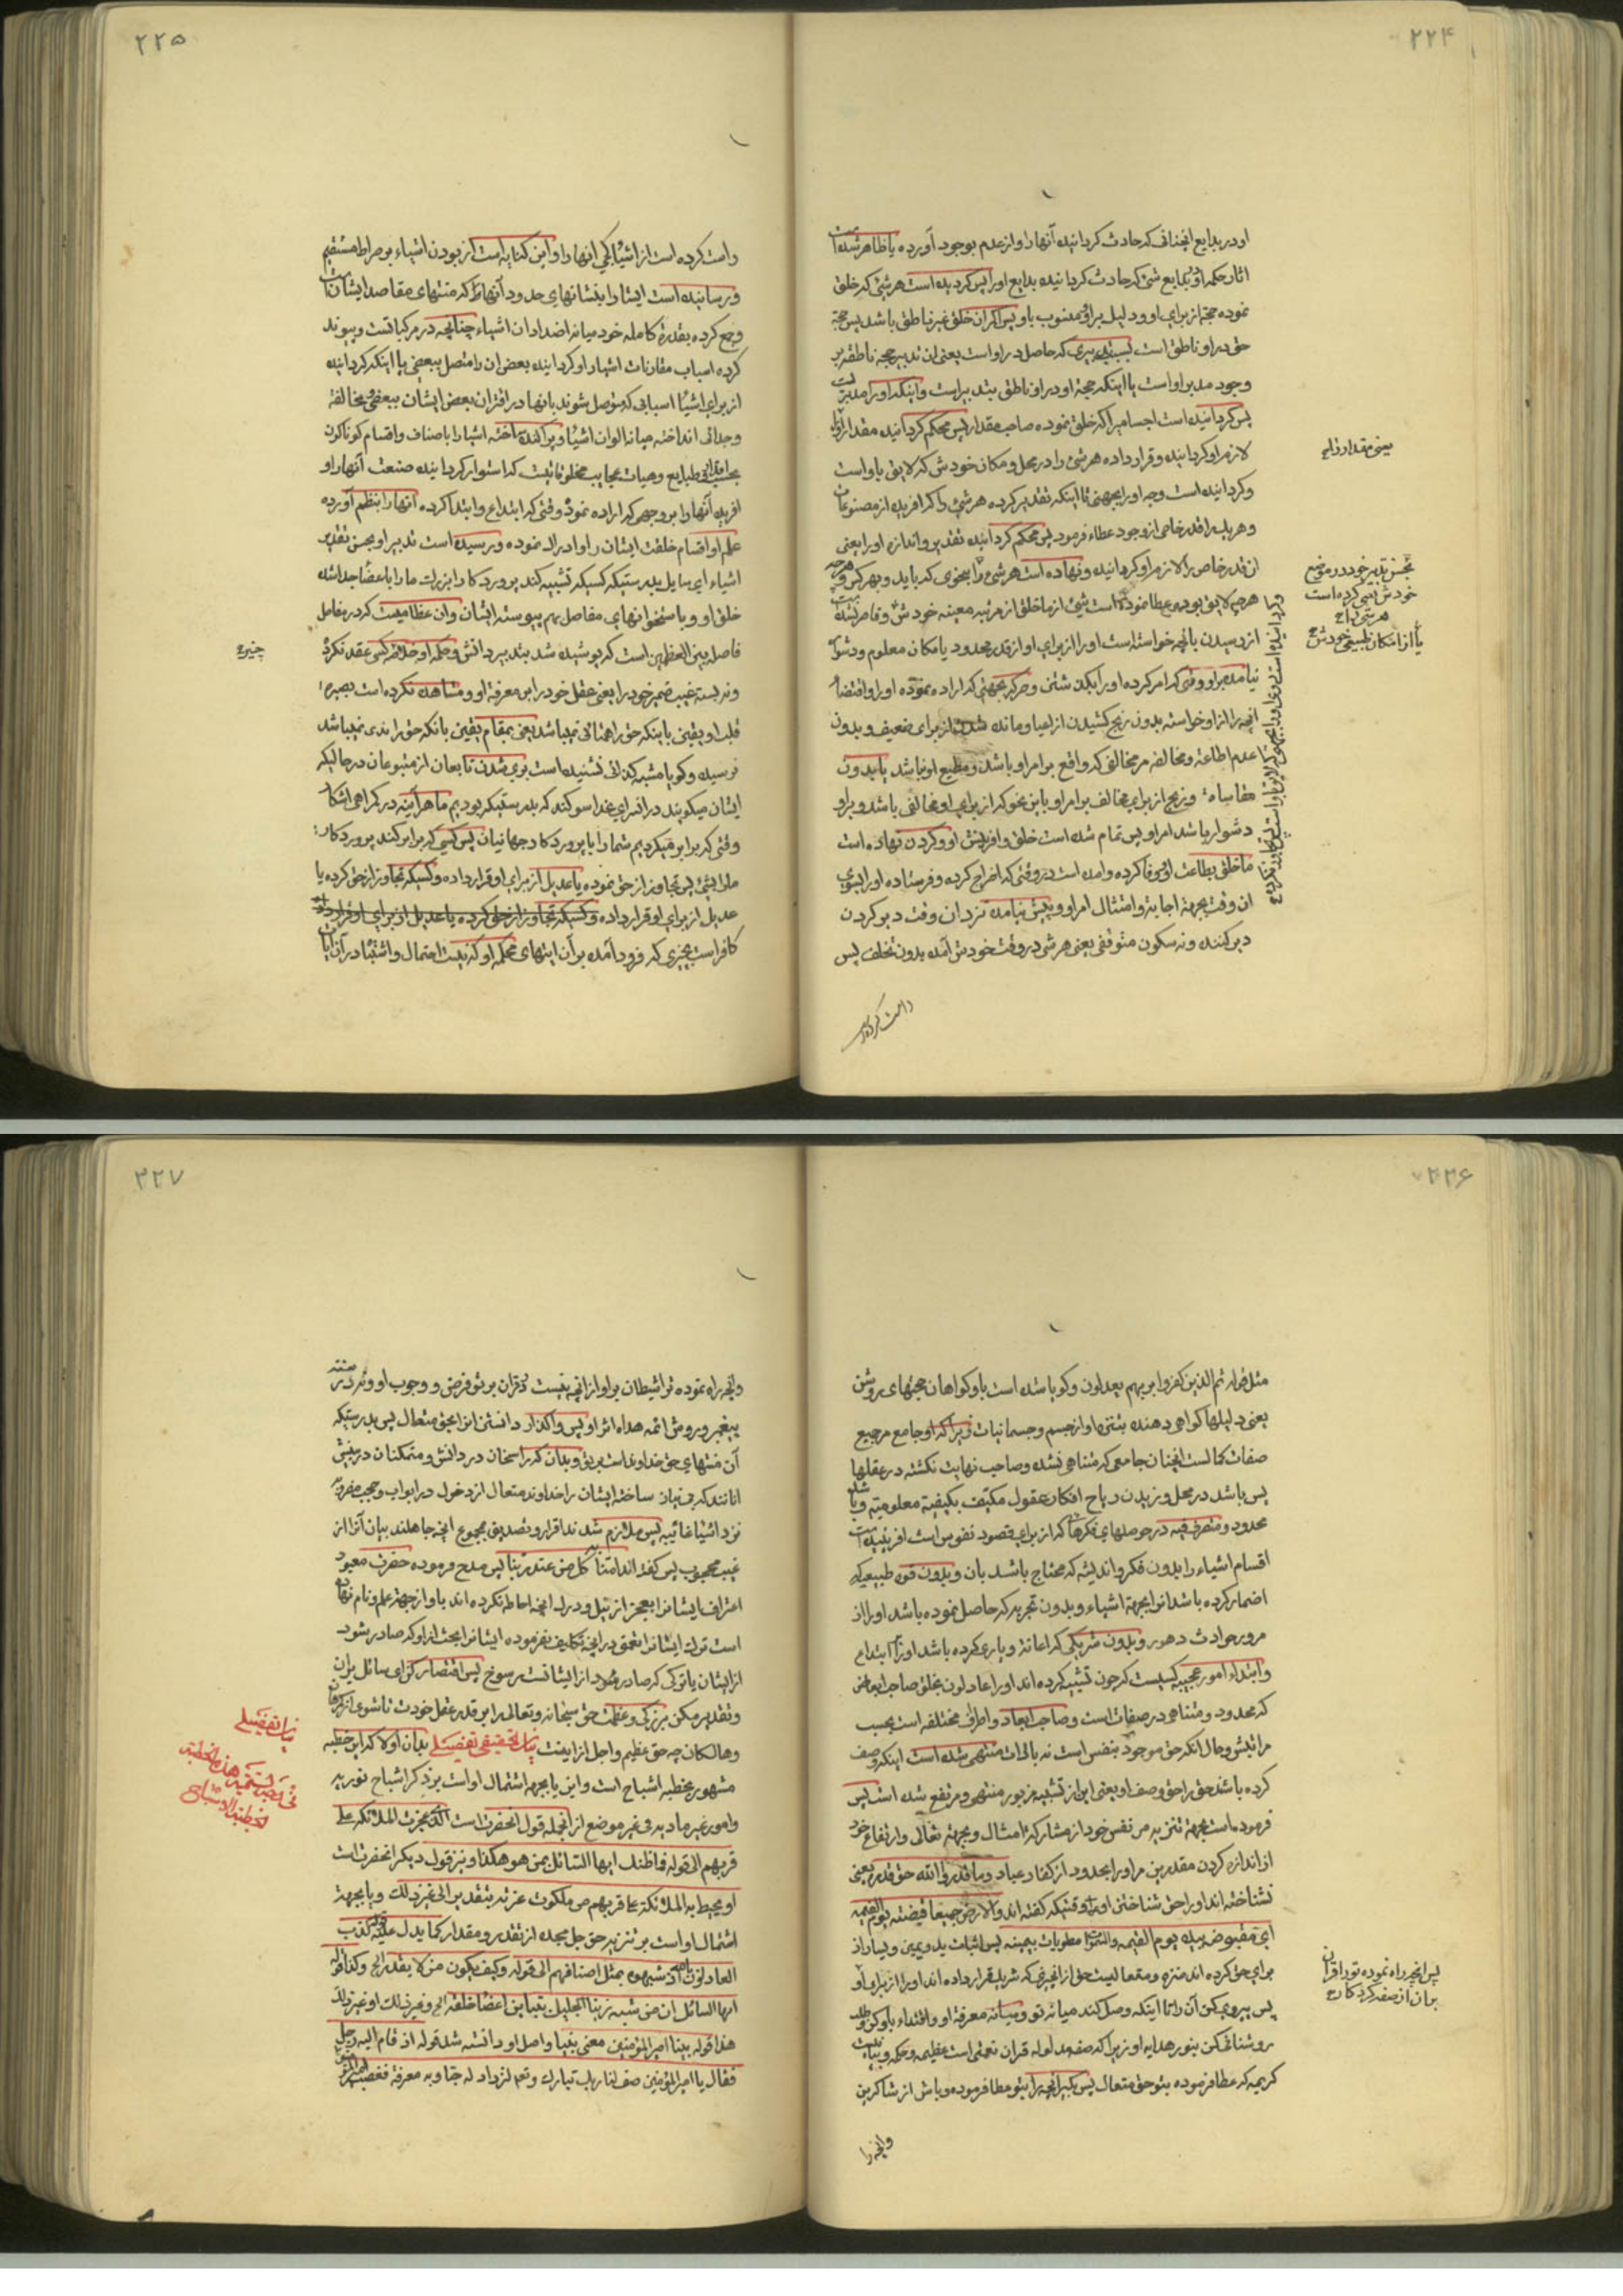 ۲۲۴
او در بدایع انچنانی که حادث کردانیده آنها را و از عدم بوجود آورده یا ظاهر شده است
اثار حکمه او بدایع شئ که حادث کردانیده بدایع او را پس کردیده است هر شئ که خلق
نموده حجة از برای او و دلیل بر او منسوب باو پس اکر ان خلق غیر ناطق باشد پس حجة
حق در او ناطق است بسبب تدبیری که حاصل در او است یعنی ان تدبیر حجه ناطقه بر
وجود مدبر او است یا اینکه حجة او در او ناطق بتدبیر است و اینکه او را مدبریست
پس کردانیده است اجسامیرا که خلق نموده صاحب مقدار پس محکم کردانیده مقدار او را
لازم او کردانیده و قرار داده هر شئ را در محل و مکان خودش که لایق باو است
و کردانیده است وجه او را بجهتی تا اینکه تقدیر کرده هر شئ را که افریده از مصنوعات
و هر یک را قدر خاص از وجود عطاء فرمود پس محکم کردانیده تقدیر و اندازه او را یعنی
ان قدر خاص را لازم او کردانیده و نهاده است هر شئ را بنحوی که باید و بهر کس هر چه
هر چه لایق بوده عطا نموده است شئ از ما خلق از مرتبه معینه خودش و قاصر نشده است
از رسیدن بانچه خواسته است او را از برای او از قدر محدود یا مکان معلوم و دشوار
نیامده بر او وقتی که امر کرده او را بکن شئی و حرکة بجهتی که اراده نموده او را و اقتضا
انچه را از او خواسته بدون رنج کشیدن از اعیا و مانده شدن از برای ضعیف و بدون
عدم اطاعة و مخالفه مر مخالفی که واقع بر امر او باشد و مطیع او نباشد یا بدون
مقاساه و رنج از برای مخالف بر امر او باین نحو که از برای او مخالفی باشد و بر او
دشوار باشد امر او پس تمام شده است خلق و افرینش او و کردن نهاده است
ما خلق بطاعت او و وفا کرده و امده است در وقتی که اخراج کرده و فرستاده او را بسوی
ان وقت بجهة اجابة و امتثال امر او و پیش نیامده نزد ان وقت دیر کردن
دیر کننده و نه سکون متوقفی یعنی هر شئ در وقت خودش آمده بدون تخلف پس
راست کرده است
یعنی مقدار ذاتی
بحسن تدبیر خود در موضع
خودش یعنی کرده است
هر شئ را ح
یا از امکان طبیعی خودش ح
۲۲۵
راست کرده است از اشیا کجی انها را و این کنایه است از بودن اشیاء بر صراط مستقیم
و رسانیده است ایشانرا بنشانهای حدود آنها که منتهای مقاصد ایشان است
و جمع کرده بقدرة کامله خود میانه اضداد ان اشیاء چنانچه در مرکباتست و پیوند
کرده اسباب مقارنات اشیاء را و کردانیده بعض ان را متصل ببعضی یا اینکه کردانیده
از برای اشیا اسبابی که متوصل شوند بانها در اقتران بعض ایشان ببعضی مخالفة
و جدائی انداخته میانه الوان اشیا و پراکنده ساخته اشیا را باصناف و اقسام کوناکون
بحسب طبایع و هیات عجایب مخلوقاتیست که استوار کردانیده صنعت آنها را و
افریده آنها را بر وجهی که اراده نمود وقتی که ابتداع و ابتدا کرده آنها را بنظم آورده
علم او اقسام خلقت ایشان را و ادراک نموده و رسیده است تدبیر او بحسن تقدیر
اشیاء ای سایل بدرستیکه کسیکه تشبیه کند پروردکار را بزرات ما را باعضا جدا شده
خلق او و باستخوانهای مفاصل بهم پیوسته ایشان وان عظامیست که در مفاصل
فاصله بین العظمین است که پوشیده شد بتدبیر دانش و حکمة او خلافه کسی عقد نکرد
و نه بسته غیب ضمیر خود را یعنی عقل خود را بر معرفة او و مشاهده نکرده است بصیرة
قلب او یقین باینکه حق را همتائی نمیباشد یعنی بمقام یقین بانکه حق را ندی نمیباشد
نرسیده و کویا مشبه که انی نشنیده است بری شدن تابعان از متبوعان در حالیکه
ایشان میکویند در افترای خدا سوکند که بدرستیکه بودیم ما هر آینه در کمراهی اشکار
وقتی که برابر میکردیم شما را با پروردکار جهانیان پس کسی که برابر کند پروردکار
ما را بشئ پس تجاوز از حق نموده یا عدیل از برای او قرار داده و کسیکه تجاوز از حق کرده یا
عدیل از برای او قرار داده و کسیکه تجاوز از حق کرده یا عدیل از برای او قرار داده
کافر است بچیزی که فرود آمده بر آن ایتهای محکمه او که نیست احتمال و اشتباه در آن ایات
چیزی ح
۲۲۶
مثل قوله ثم الذین کفروا بربهم یعدلون و کویا شده است باو کواهان حجتهای روشن
یعنی دلیلها کواهی دهنده بتنزه او از جسم و جسمانیات زیرا که او جامع مر جمیع
صفات کمالست انچنان جامعی که متناهی نشده و صاحب نهایت نکشته در عقلها
پس باشد در محل وزیدن ریاح افکار عقول مکیف بکیفیة معلومیة و باشد
محدود و متصرف فیه در حوصلهای فکرها که از برای قصود نفوس است افریننده است
اقسام اشیاء را بدون فکر و اندیشه که محتاج باشد بان و بدون قوه طبیعیه که
اضمار کرده باشد انرا بجهة اشیاء و بدون تجربه که حاصل نموده باشد او را از
مرور حوادث دهور و بدون شریکی که اعانة و یاری کرده باشد او را بر ابتداع
و ابتداء امور عجیبه کیست که چون تشبیه کرده اند او را عادلون بخلق صاحب ابعاض
که محدود و متناهی در صفات است و صاحب ابعاد و اطراف مختلفه است بحسب
مراتبش و حال انکه حق موجود بنفس است نه بالات منتهی شده است اینکه وصف
کرده باشد حق را حق وصف او یعنی این از تشبیه مزبور منتهی و مرتفع شده است پس
فرموده است بجهة تنزیه مر نفس خود از مشارکة امثال و بجهة تعالی و ارتفاع خود
از اندازه کردن مقدرین مر او را بحدود از کفار عباد و ما قدروا الله حق قدره یعنی
نشناخته اند او را حق شناختن او وقتیکه کفته اند والارض جمیعا قبضته یوم القیمة
ای مقبوضه بیده یوم القیمة والسموات مطویات بیمینه پس اثبات ید و یمین و یسار از
برای حق کرده اند منزه و متعالیست حق از انچیزی که شریک قرار داده اند او را از برای او
پس پیروی کن آن را تا اینکه وصل کند میانه تو و میانه معرفة او و اقتداء باو کن و طلب
روشنائی کن بنور هدایه او زیرا که صفة مدلوله قران نعمتی است عظیمه و حکمه و بینات
کریمه که عطا فرموده بتو حق متعال پس بکیر انچه را بتو عطا فرموده و باش از شاکرین
و انچه را
پس انچه راه نموده تو را قران
بران از صفة کردکار ح
۳۲۷
وانچه راه نموده تو را شیطان بر او از انچه نیست در قران بر تو فرض و وجوب او و نه در سنة
پیغمبر و روش ائمه هداه اثر او پس واکذار دانستن انرا بحق متعال پس بدرستیکه
آن منتهای حق خداوند است بر تو و بدان که راسخان در دانش و متمکنان در بینش
انانند که بی نیاز ساخته ایشان را خداوند متعال از دخول در ابواب و حجب مضروبه
نزد اشیا غائبیه پس ملازم شدند اقرار و تصدیق بمجموع انچه جاهلند بیان آنرا از
غیب محجوب پس کفته اند امنا به کل من عند ربنا پس مدح فرموده حضرت معبود
اعتراف ایشانرا بعجز از نیل و درک انچه احاطه نکرده اند باو از جهة علم و نام نهاده
است ترک ایشانرا تعمق در انچه تکلیف نفرموده ایشانرا بحث از او که صادر شود
از ایشان یا ترکی که صادر شود از ایشانست رسوخ پس اقتصار کن ای سائل بران
و تقدیر مکن بزرکی و عظمت حق سبحانه و تعالی را بر قدر عقل خودت تا شوی از کافران
وهالکان چه حق عظیم و اجل از اینست بیان تحقیقی تفصیلی بدان اولا که این خطبه
مشهور بخطبه اشباح است و این یا بجهة اشتمال او است بر ذکر اشباح نوریه
وامور غیر مادیه فی غیر موضع از انجمله قول انحضرت است الذی عجزت الملائکة علی
قربهم الی قوله فما ظنک ایها السائل بمن هو هکذا و نیز قول دیکر انحضرت است
او یحیط به الملائکة علی قربهم من ملکوت عزته بتقدیر الی غیر ذلک و یا بجهة
اشتمال او است بر تنزیه حق جل مجده از تقدیر و مقدار کما یدل علیه قوله کذب
العادلون بالله اذ شبهوه بمثل اصنافهم الی قوله وکیف یکون من لا یقدر الخ وکذا قوله
ایها السائل ان من شبه ربنا الجلیل بتباین اعضا خلقه الخ وغیر ذلک او غیر ذلک
هذا قوله بینا امیر المؤمنین معنی بینا و اصل او دانسته شد قوله اذ قام الیه رجل
فقال یا امیر المؤمنین صف لنا ربک تبارک وتعالی لنزداد له حبا وبه معرفة فغضب امیر المؤمنین
بیان تفصیلی
فی وجه تسمیة هذه الخطبة
بخطبة الاشباح